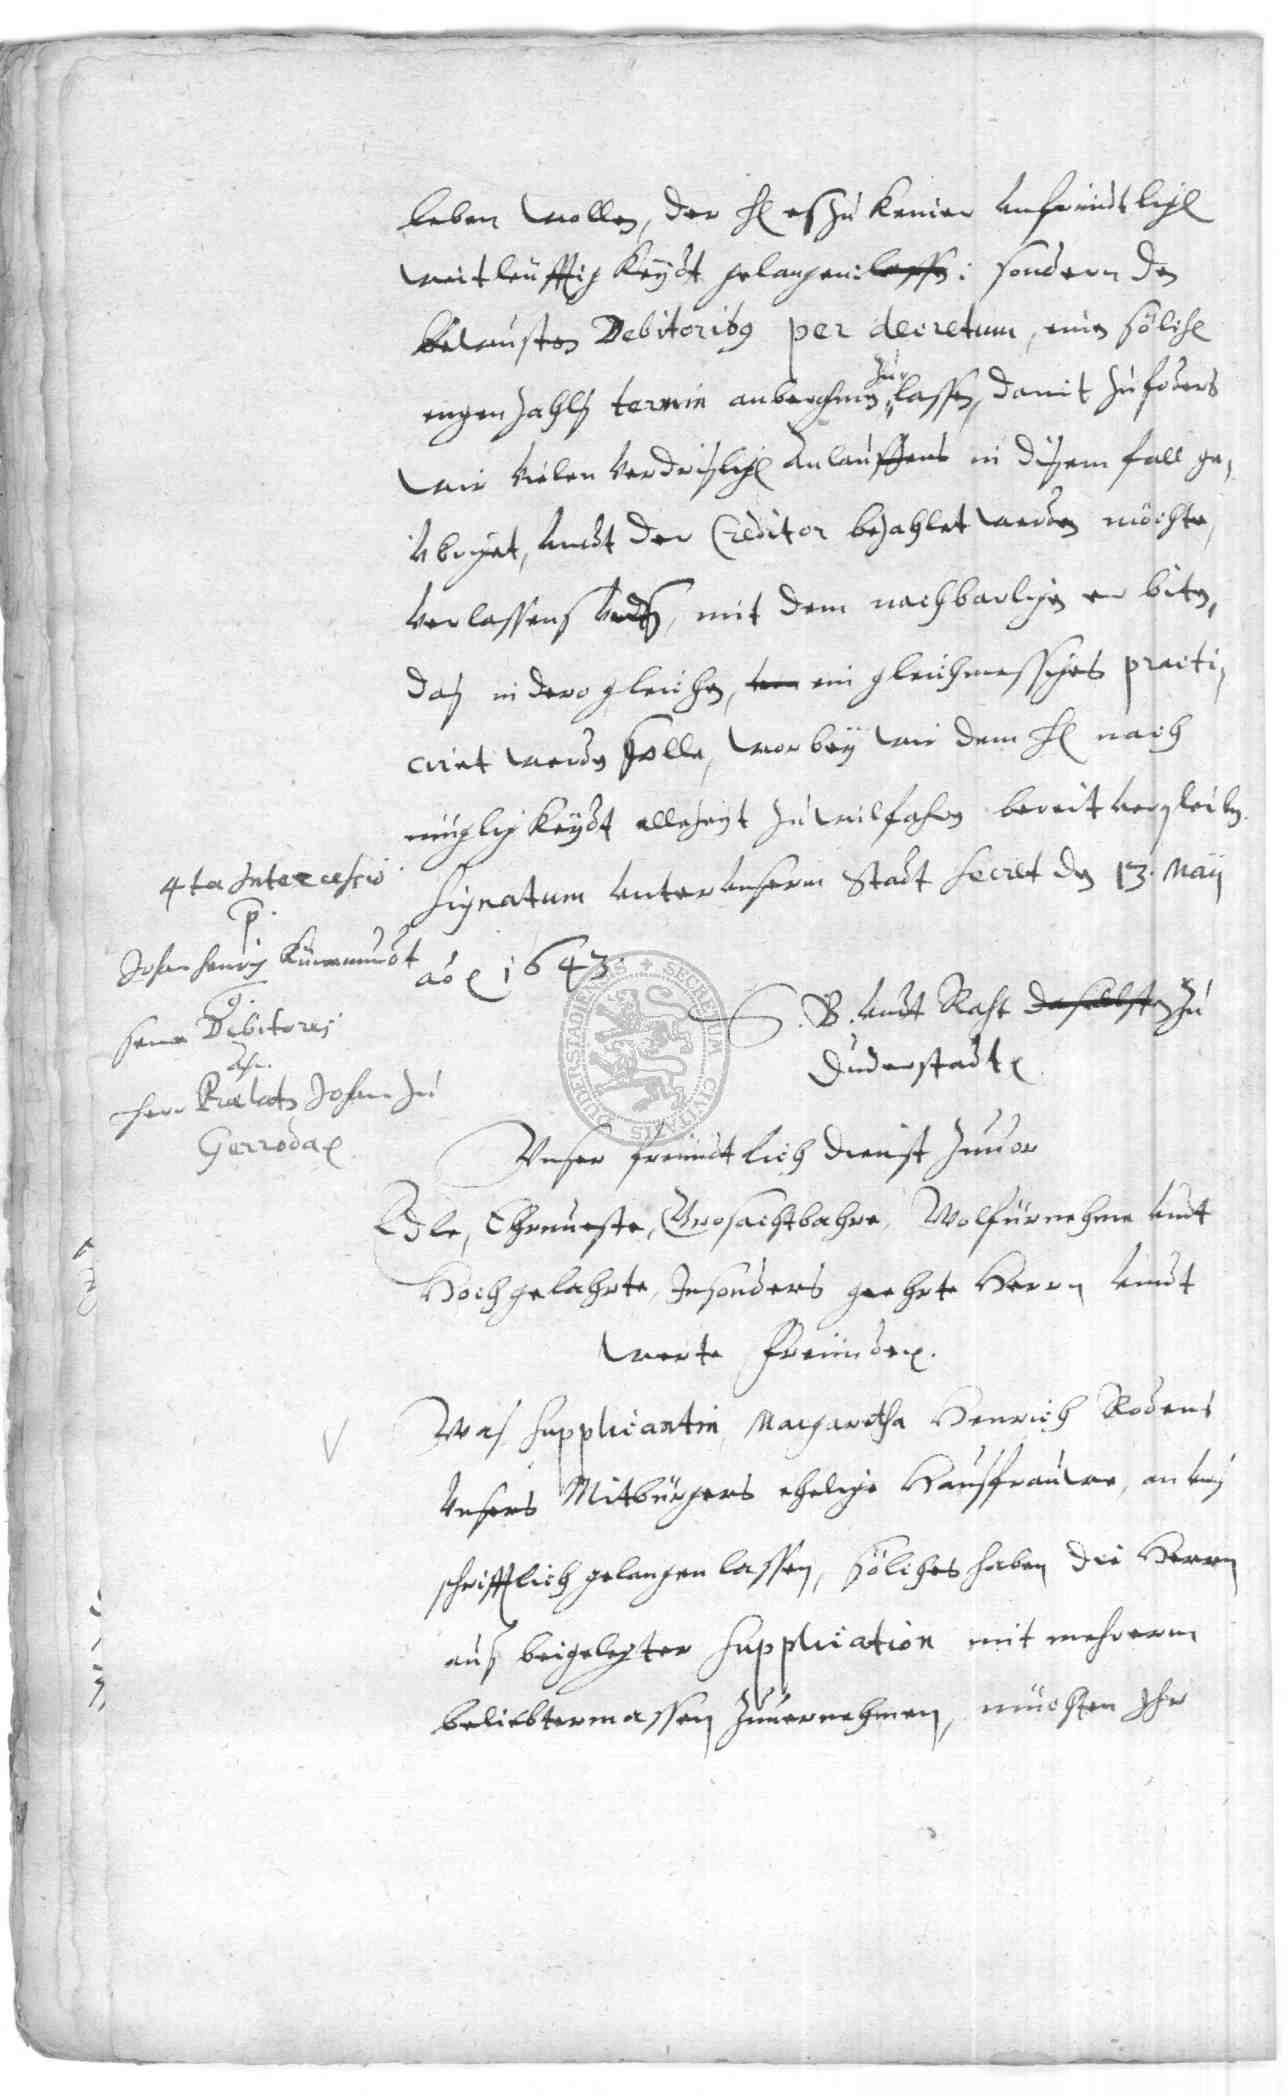 leben wollen, der H eß zu keiner unfreündtlich
weitleüfftigkeydt gelangen lassen: sondern den
bewusten Debitoribus per decretum, einen sölche
engen zahls termin anberahmen zu lassen, damit zuforders
wir vielen verdrislich anlauffens in disem fall ge,
übriget, undt der Creditor bezahlet werden möchte,
verlassens, mit dem nachbarlichen er biten,
daß in dero gleichen, ein gleichmessiges practi,
ciret werden solle, worbey wir dem H nach
müglichkeydt allezeyt zu wilfahren bereit verpleiben.
Signatum unter unserm Stadt Secret den 13. Maij
ao 1643.
B. undt Raht daselbsten zu
Duderstadt
4ta Intercessio
p.
Johan Henrich Künemundt
c.
seine Debitores
an
Herr Praelaten Johan zu
Gerroda
SECRETUM CIVITATIS DUDERSTADIENSIS
Unser freündtlich dienst zuvor
Edle, Ehrnveste, Grosachtbahre, Wolfürnehme undt
Hochgelahrte, Insonders geehrte Herrn undt
werte Freünde.
Was Supplicantin, Margaretha Henrich Rodens
unsers Mitbürgers eheliche Hausfrauwe, an unß
schrifftlich gelangen lassen, sölches haben die Herrn
auß beigelegter Supplication mit mehrerm
beliebtermassen zuvernehmen, müchten Ihr